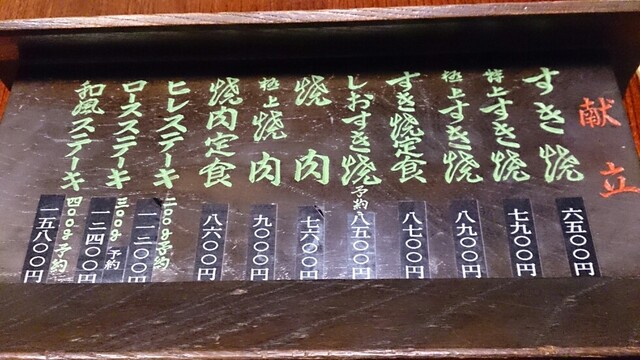 献立
すき焼 六五〇〇円
特上すき焼 七九〇〇円
極上すき焼 八九〇〇円
すき焼定食 八七〇〇円
しおすき焼 予約 八五〇〇円
焼肉 七六〇〇円
極上焼肉 九〇〇〇円
焼肉定食 八六〇〇円
ヒレステーキ 二〇〇g 予約 一一二〇〇円
ロースステーキ 三〇〇g 予約 一二四〇〇円
和風ステーキ 四〇〇g 予約 一五八〇〇円